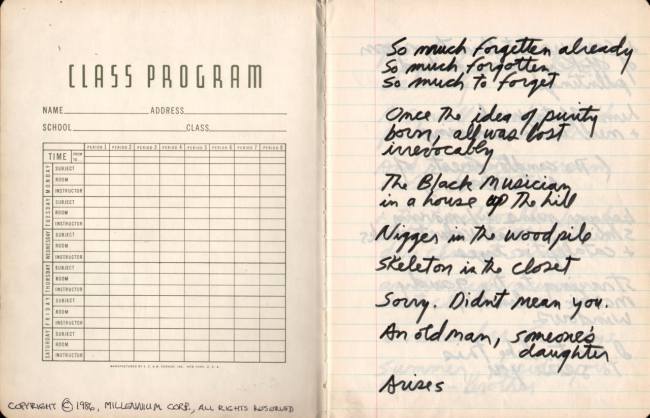 CLASS PROGRAM
NAME ADDRESS
SCHOOL CLASS
TIME FROM TO PERIOD 1 PERIOD 2 PERIOD 3 PERIOD 4 PERIOD 5 PERIOD 6 PERIOD 7 PERIOD 8
MONDAY
SUBJECT
ROOM
INSTRUCTOR
TUESDAY
SUBJECT
ROOM
INSTRUCTOR
WEDNESDAY
SUBJECT
ROOM
INSTRUCTOR
THURSDAY
SUBJECT
ROOM
INSTRUCTOR
FRIDAY
SUBJECT
ROOM
INSTRUCTOR
SATURDAY
SUBJECT
ROOM
INSTRUCTOR
COPYRIGHT © 1986, MILLENNIUM CORP., ALL RIGHTS RESERVED
So much forgetten already
So much forgotten
So much to forget
Once the idea of purity
born, all was lost
irrevocably
The Black Musician
in a house up the hill
Nigger in the woodpile
Skeleton in the closet
Sorry. Didnt mean you.
An old man, someone's
daughter
Arises